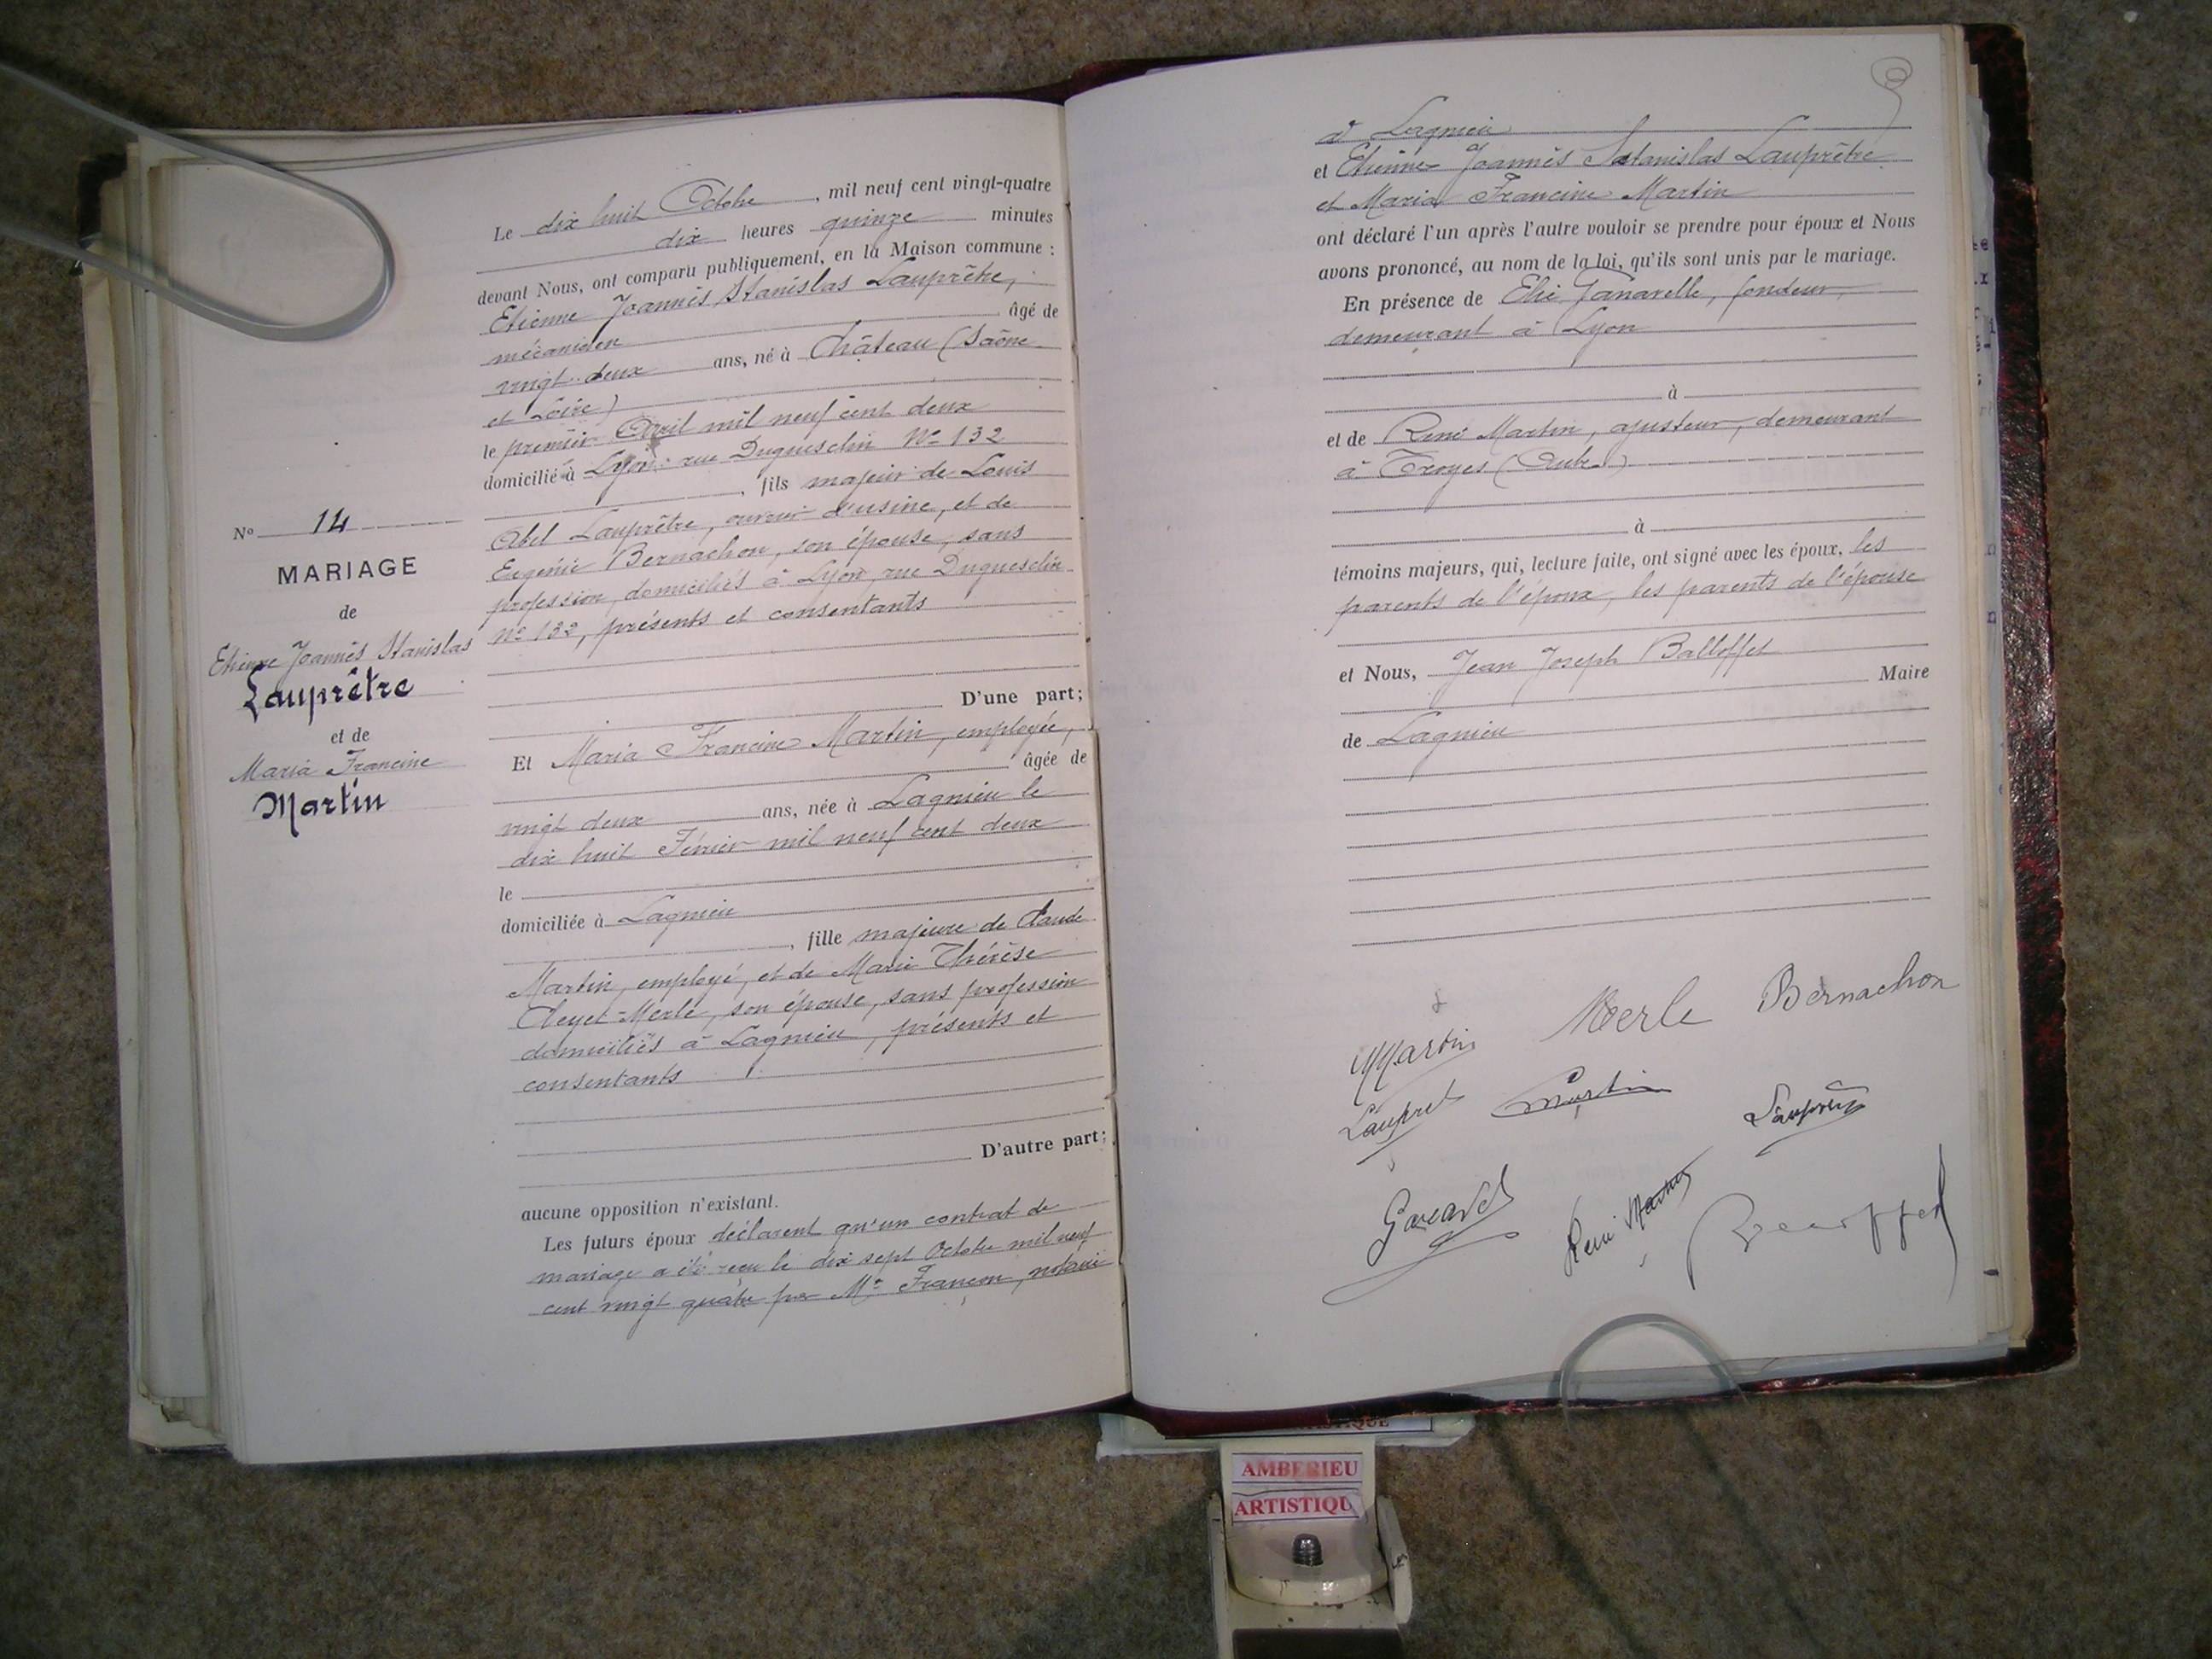 Le dix huit Octobre, mil neuf cent vingt-quatre
dix heures quinze minutes
devant Nous, ont comparu publiquement, en la Maison commune :
Etienne Joannès Stanislas Lauprêtre,
mécanicien âgé de
vingt deux ans, né à Château (Saône
et Loire)
le premier Avril mil neuf cent deux
domicilié à Lyon, rue Duguesclin N° 132
, fils majeur de Louis
Abel Lauprêtre, ouvrier d'usine, et de
Eugénie Bernachon, son épouse, sans
profession, domiciliés à Lyon, rue Duguesclin
N° 132, présents et consentants
D'une part;
Et Maria Francine Martin, employée,
âgée de
vingt deux ans, née à Lagnieu le
dix huit Février mil neuf cent deux
le
domiciliée à Lagnieu
, fille majeure de Claude
Martin, employé, et de Marie Thérèse
Cleyet-Merle, son épouse, sans profession
domiciliés à Lagnieu, présents et
consentants
D'autre part;
aucune opposition n'existant.
Les futurs époux déclarent qu'un contrat de
mariage a été reçu le dix sept Octobre mil neuf
cent vingt quatre par Me Françon, notaire
N° 14
MARIAGE
de
Etienne Joannès Stanislas
Lauprêtre
et de
Maria Francine
Martin
à Lagnieu
et Etienne Joannès Stanislas Lauprêtre
et Maria Francine Martin
ont déclaré l'un après l'autre vouloir se prendre pour époux et Nous
avons prononcé, au nom de la loi, qu'ils sont unis par le mariage.
En présence de Elie, fondeur,
demeurant à Lyon
à
et de René Martin, ajusteur, demeurant
à Troyes (Aube)
à
témoins majeurs, qui, lecture faite, ont signé avec les époux, les
parents de l'époux, les parents de l'épouse
et Nous, Jean Joseph Balloffet
Maire
de Lagnieu
MMartin Merle Bernachon
Martin
René Martin
AMBERIEU
ARTISTIQU